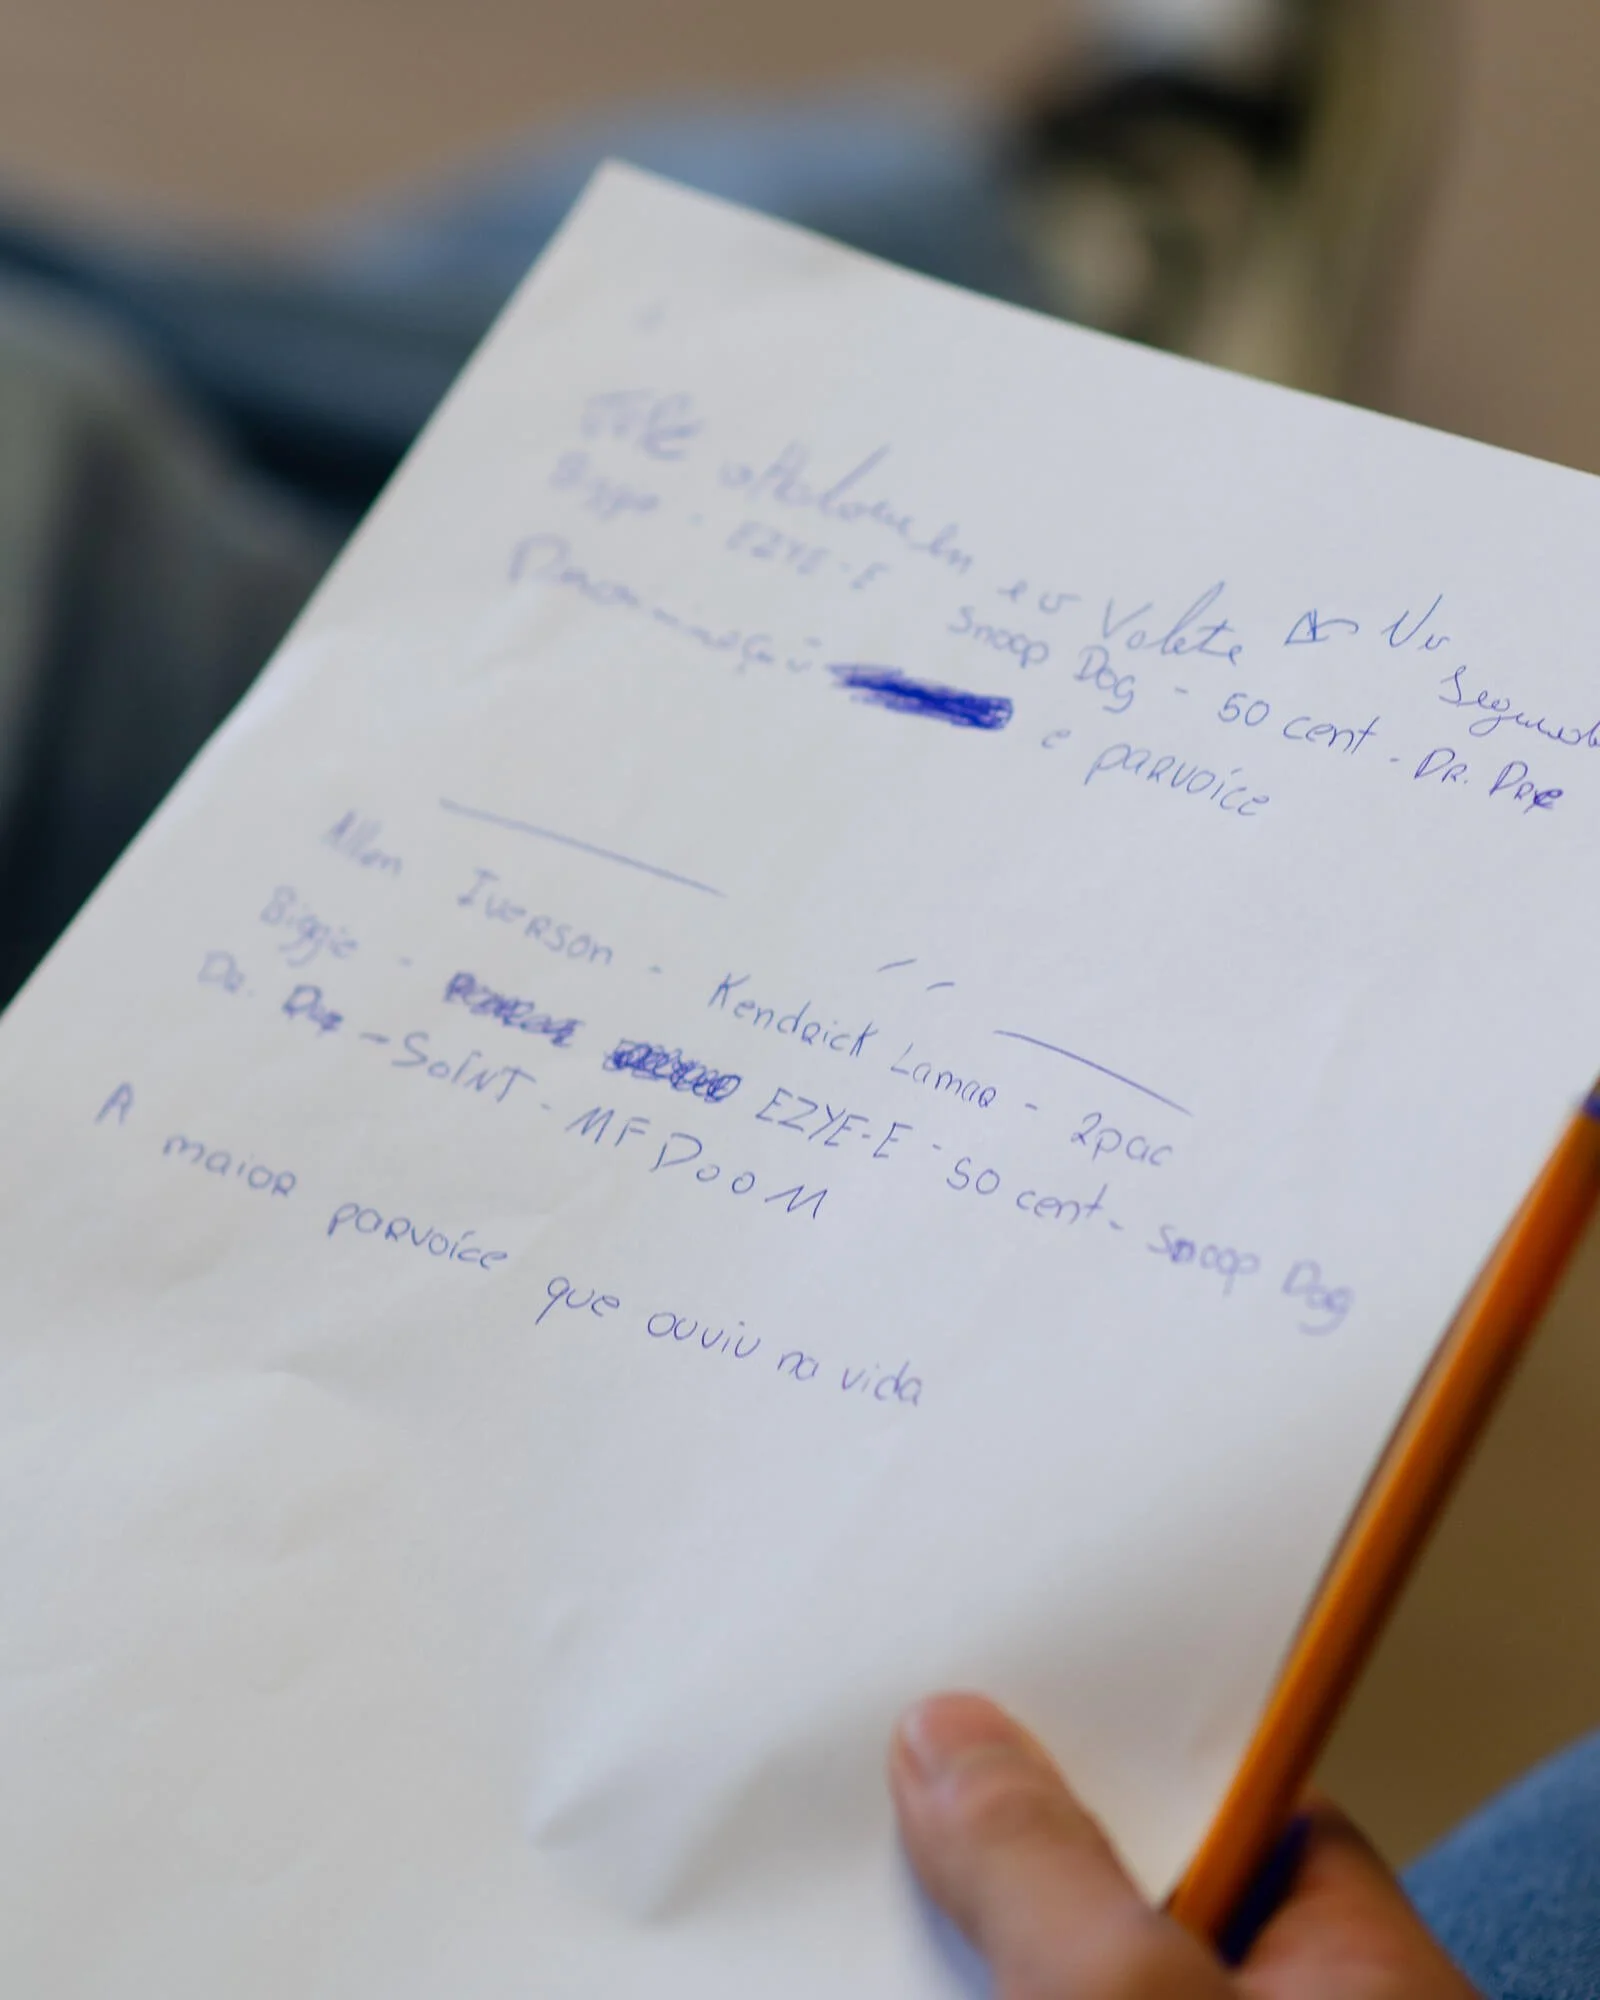 e o Valete Nu Segundo
EZYE-E Snoop Dog - 50 cent - DR. DRe
e parvoíce
Allen Iverson - Kendrick Lamar - 2pac
Biggie - EZYE-E - 50 cent - Snoop Dog
Dr. Dre - SOINT - MF DOOM
A maior parvoíce que ouviu na vida